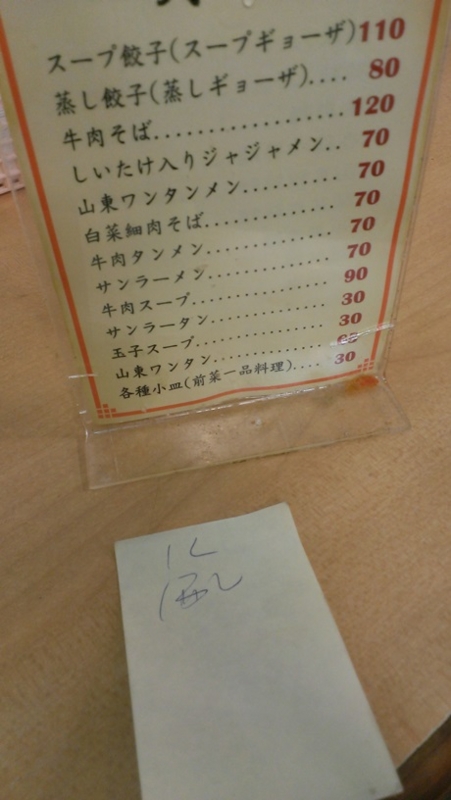 スープ餃子(スープギョーザ)110
蒸し餃子(蒸しギョーザ)....80
牛肉そば................120
しいたけ入りジャジャメン..70
山東ワンタンメン..........70
白菜細肉そば..............70
牛肉タンメン..............70
サンラーメン..............70
牛肉スープ................90
サンラータン..............30
玉子スープ................30
山東ワンタン..............
各種小皿(前菜一品料理)....30